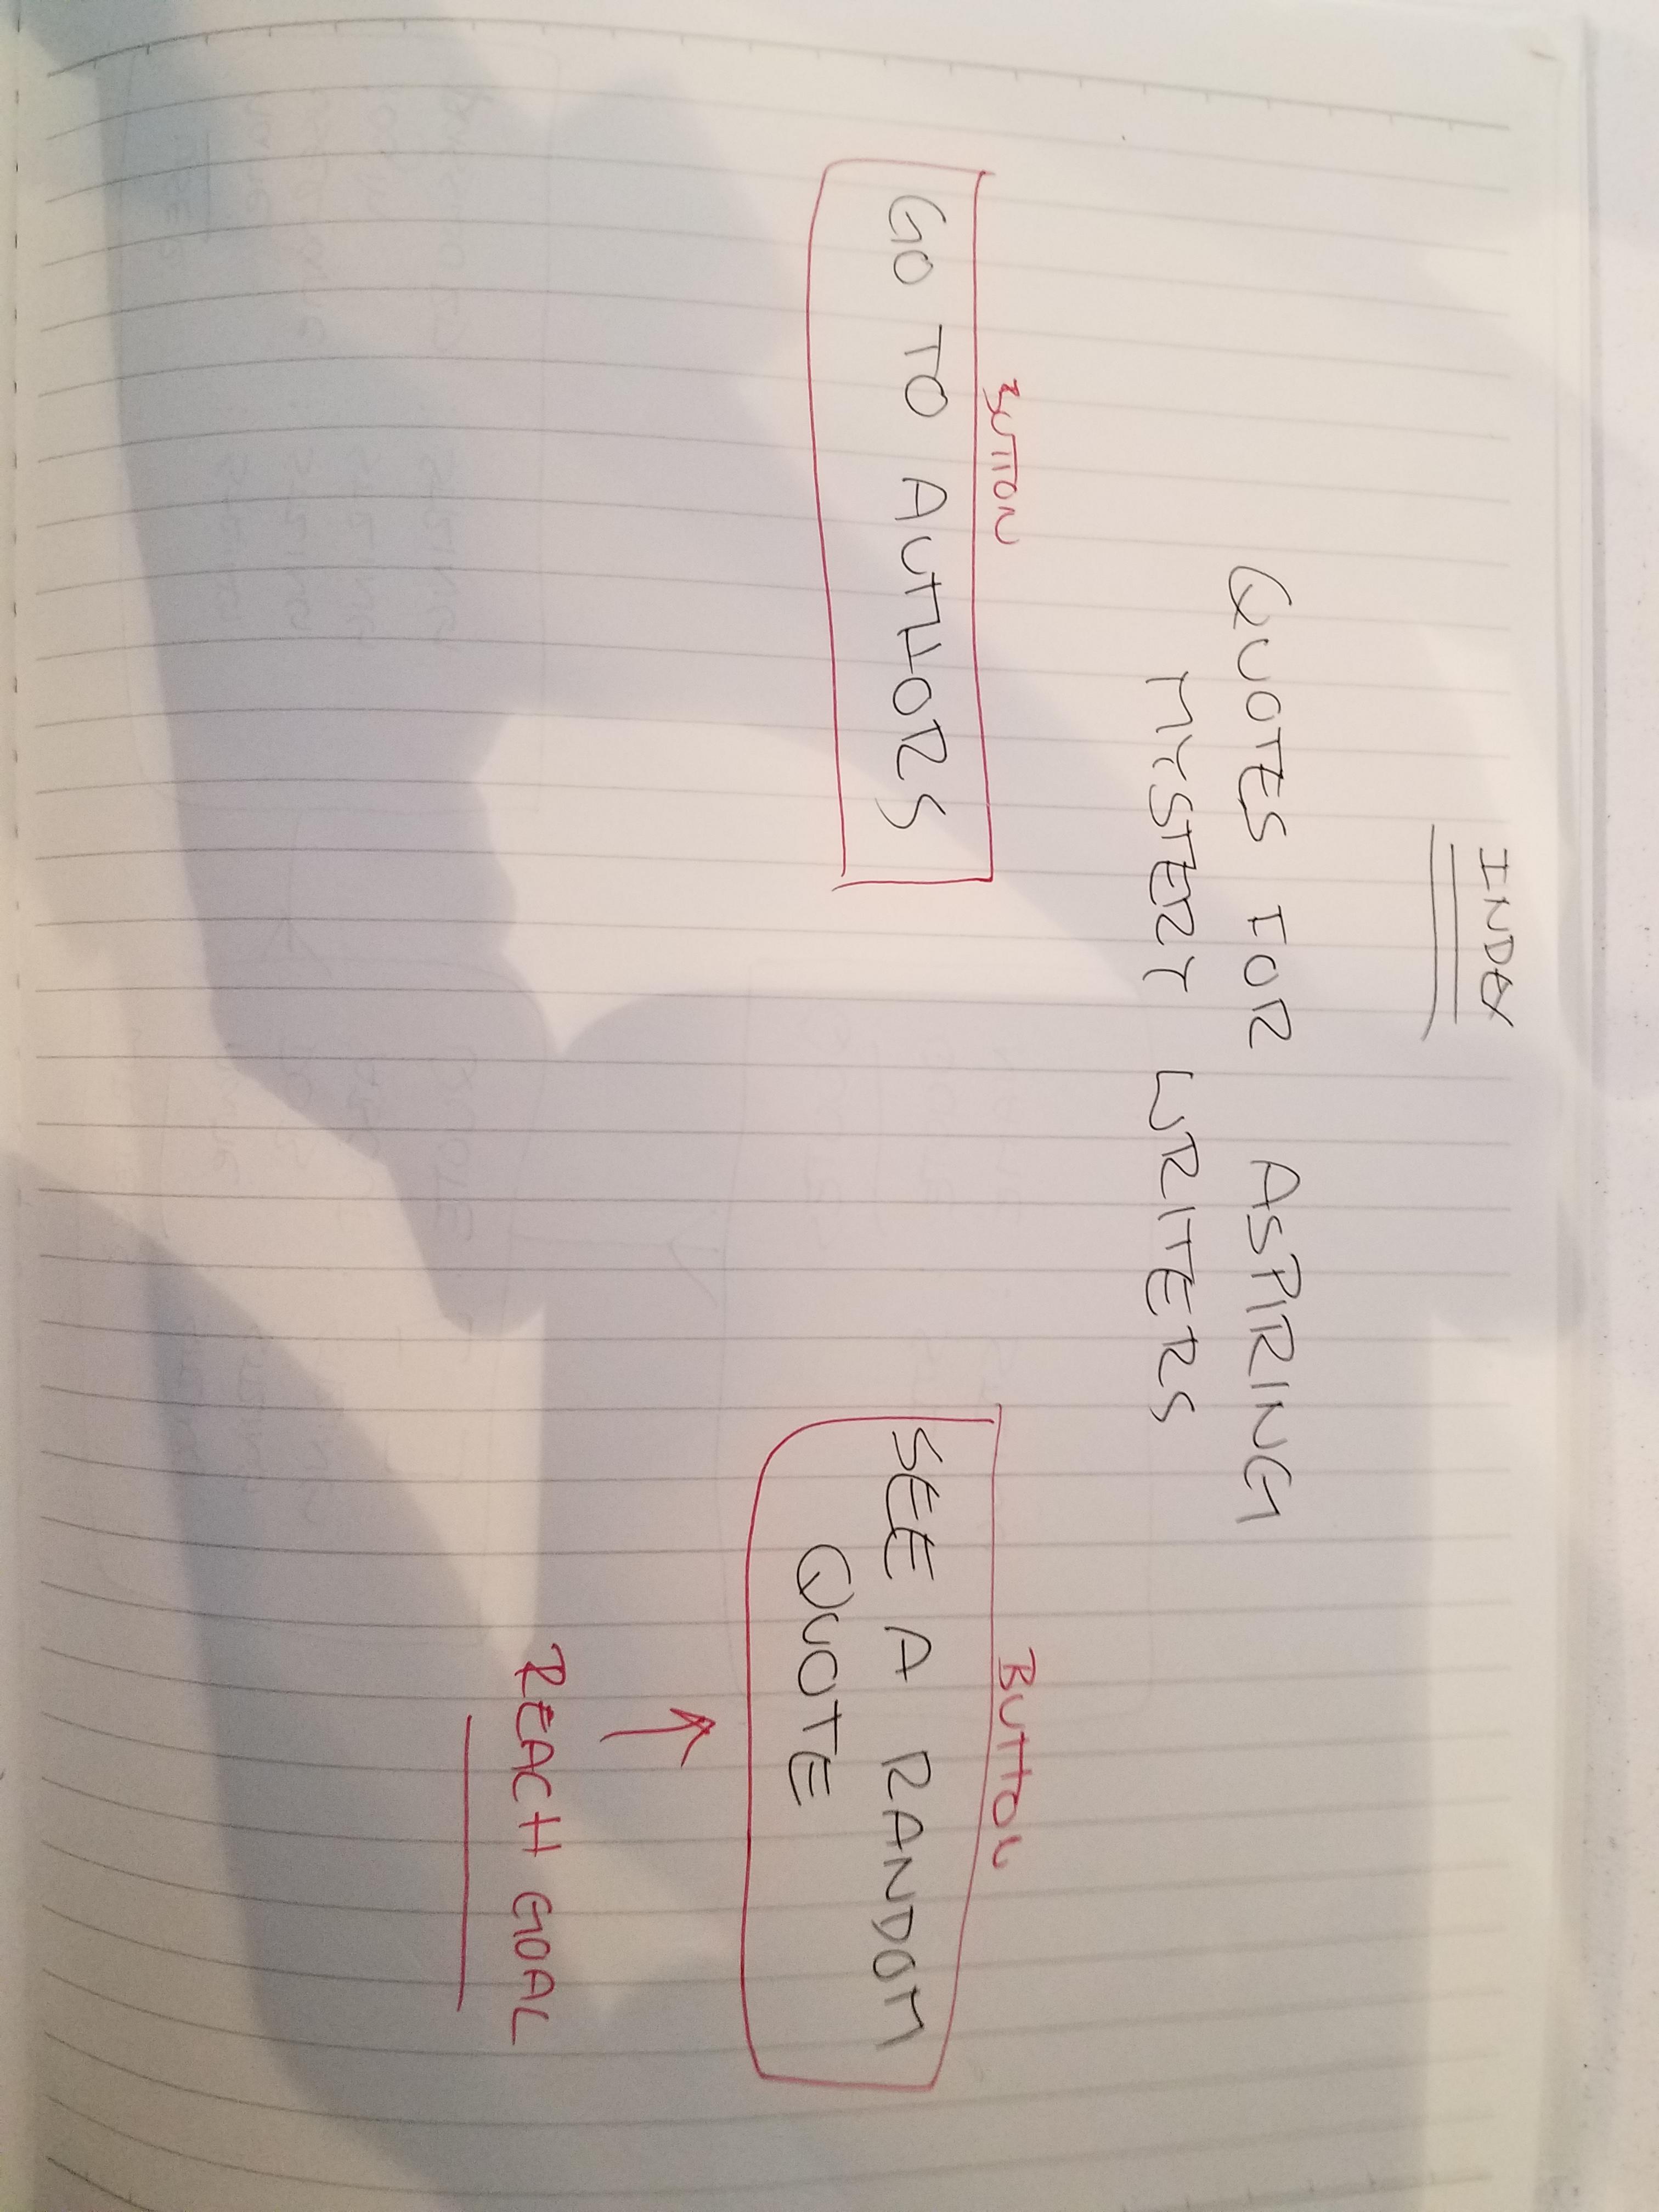 INDEX
QUOTES FOR ASPIRING
MYSTERY WRITERS
BUTTON
GO TO AUTHORS
BUTTON
SEE A RANDOM
QUOTE
REACH GOAL